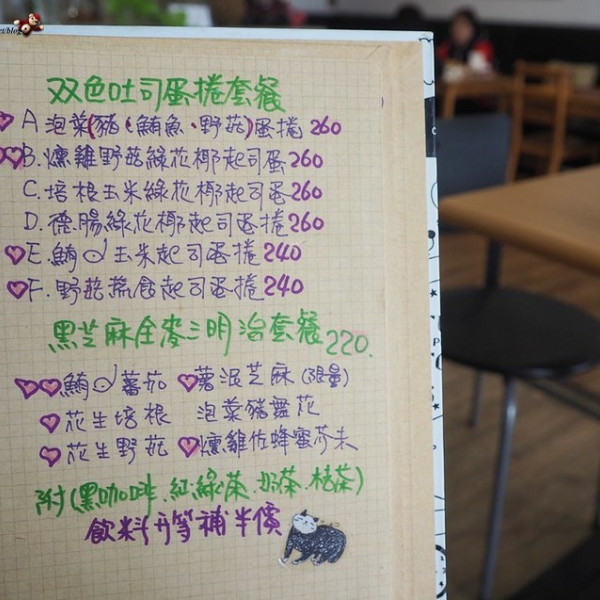 双色吐司蛋捲套餐
A 泡菜(豬、鮪魚、野菇)蛋捲 260
B. 燻雞野菇綠花椰起司蛋 260
C. 培根玉米綠花椰起司蛋 260
D. 德腸綠花椰起司蛋捲 260
E. 鮪 玉米起司蛋捲 240
F. 野菇蔬食起司蛋捲 240
黑芝麻全麥三明治套餐 220.
鮪 蕃茄 薯泥芝麻 (限量)
花生培根 泡菜豬雪花
花生野菇 燻雞佐蜂蜜芥末
附(黑咖啡.紅綠茶.奶茶.桔茶)
飲料升等補半價